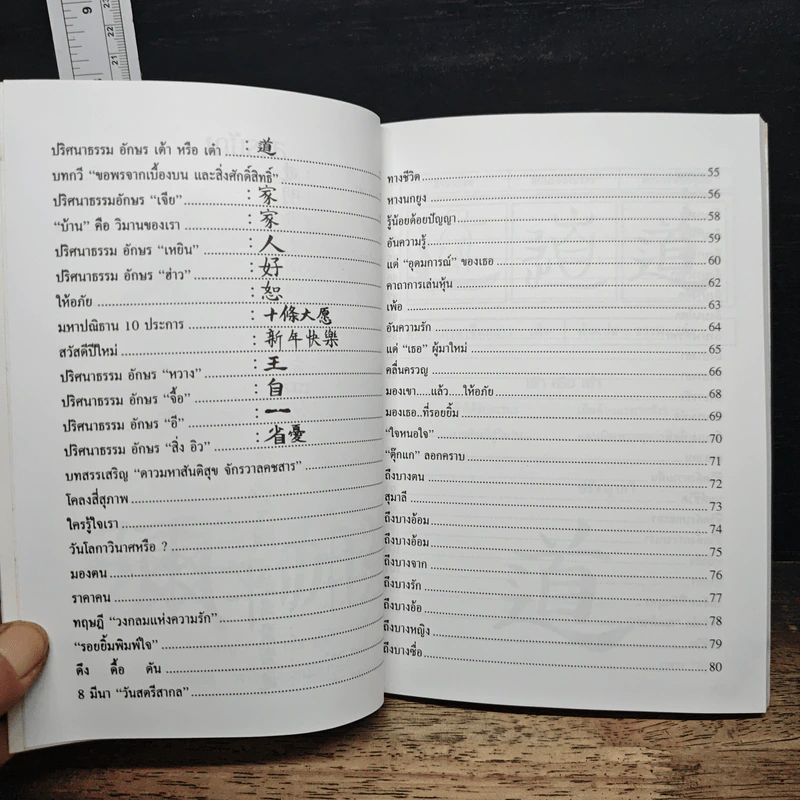 9
23
22
21
ปริศนาธรรม อักษร เต้า หรือ เต๋า : 道
บทกวี "ขอพรจากเบื้องบน และสิ่งศักดิ์สิทธิ์"
ปริศนาธรรมอักษร "เจีย" : 家
"บ้าน" คือ วิมานของเรา : 家
ปริศนาธรรม อักษร "เหยิน" : 人
ปริศนาธรรม อักษร "ฮ่าว" : 好
ให้อภัย : 恕
มหาปณิธาน 10 ประการ : 十條大愿
สวัสดีปีใหม่ : 新年快樂
ปริศนาธรรม อักษร "หวาง" : 王
ปริศนาธรรม อักษร "จื้อ" : 自
ปริศนาธรรม อักษร "อี" : 一
ปริศนาธรรม อักษร "สิ่ง อิว" : 省憂
บทสรรเสริญ "ดาวมหาสันติสุข จักรวาลคชสาร"
โคลงสี่สุภาพ
ใครรู้ใจเรา
วันโลกาวินาศหรือ ?
มองตน
ราคาคน
ทฤษฎี "วงกลมแห่งความรัก"
"รอยยิ้มพิมพ์ใจ"
ดึง ดื้อ ดัน
8 มีนา "วันสตรีสากล"
ทางชีวิต 55
หางนกยูง 56
รู้น้อยด้อยปัญญา 58
อันความรู้ 59
แด่ "อุดมการณ์" ของเธอ 60
คาถาการเล่นหุ้น 62
เพ้อ 63
อันความรัก 64
แด่ "เธอ" ผู้มาใหม่ 65
คลื่นครวญ 66
มองเขา.....แล้ว.....ให้อภัย 68
มองเธอ..ที่รอยยิ้ม 69
"ใจหนอใจ" 70
"ตุ๊กแก" ลอกคราบ 71
ถึงบางตน 72
สุมาลี 73
ถึงบางอ้อม 74
ถึงบางอ้อม 75
ถึงบางจาก 76
ถึงบางรัก 77
ถึงบางอ้อ 78
ถึงบางหญิง 79
ถึงบางซื่อ 80